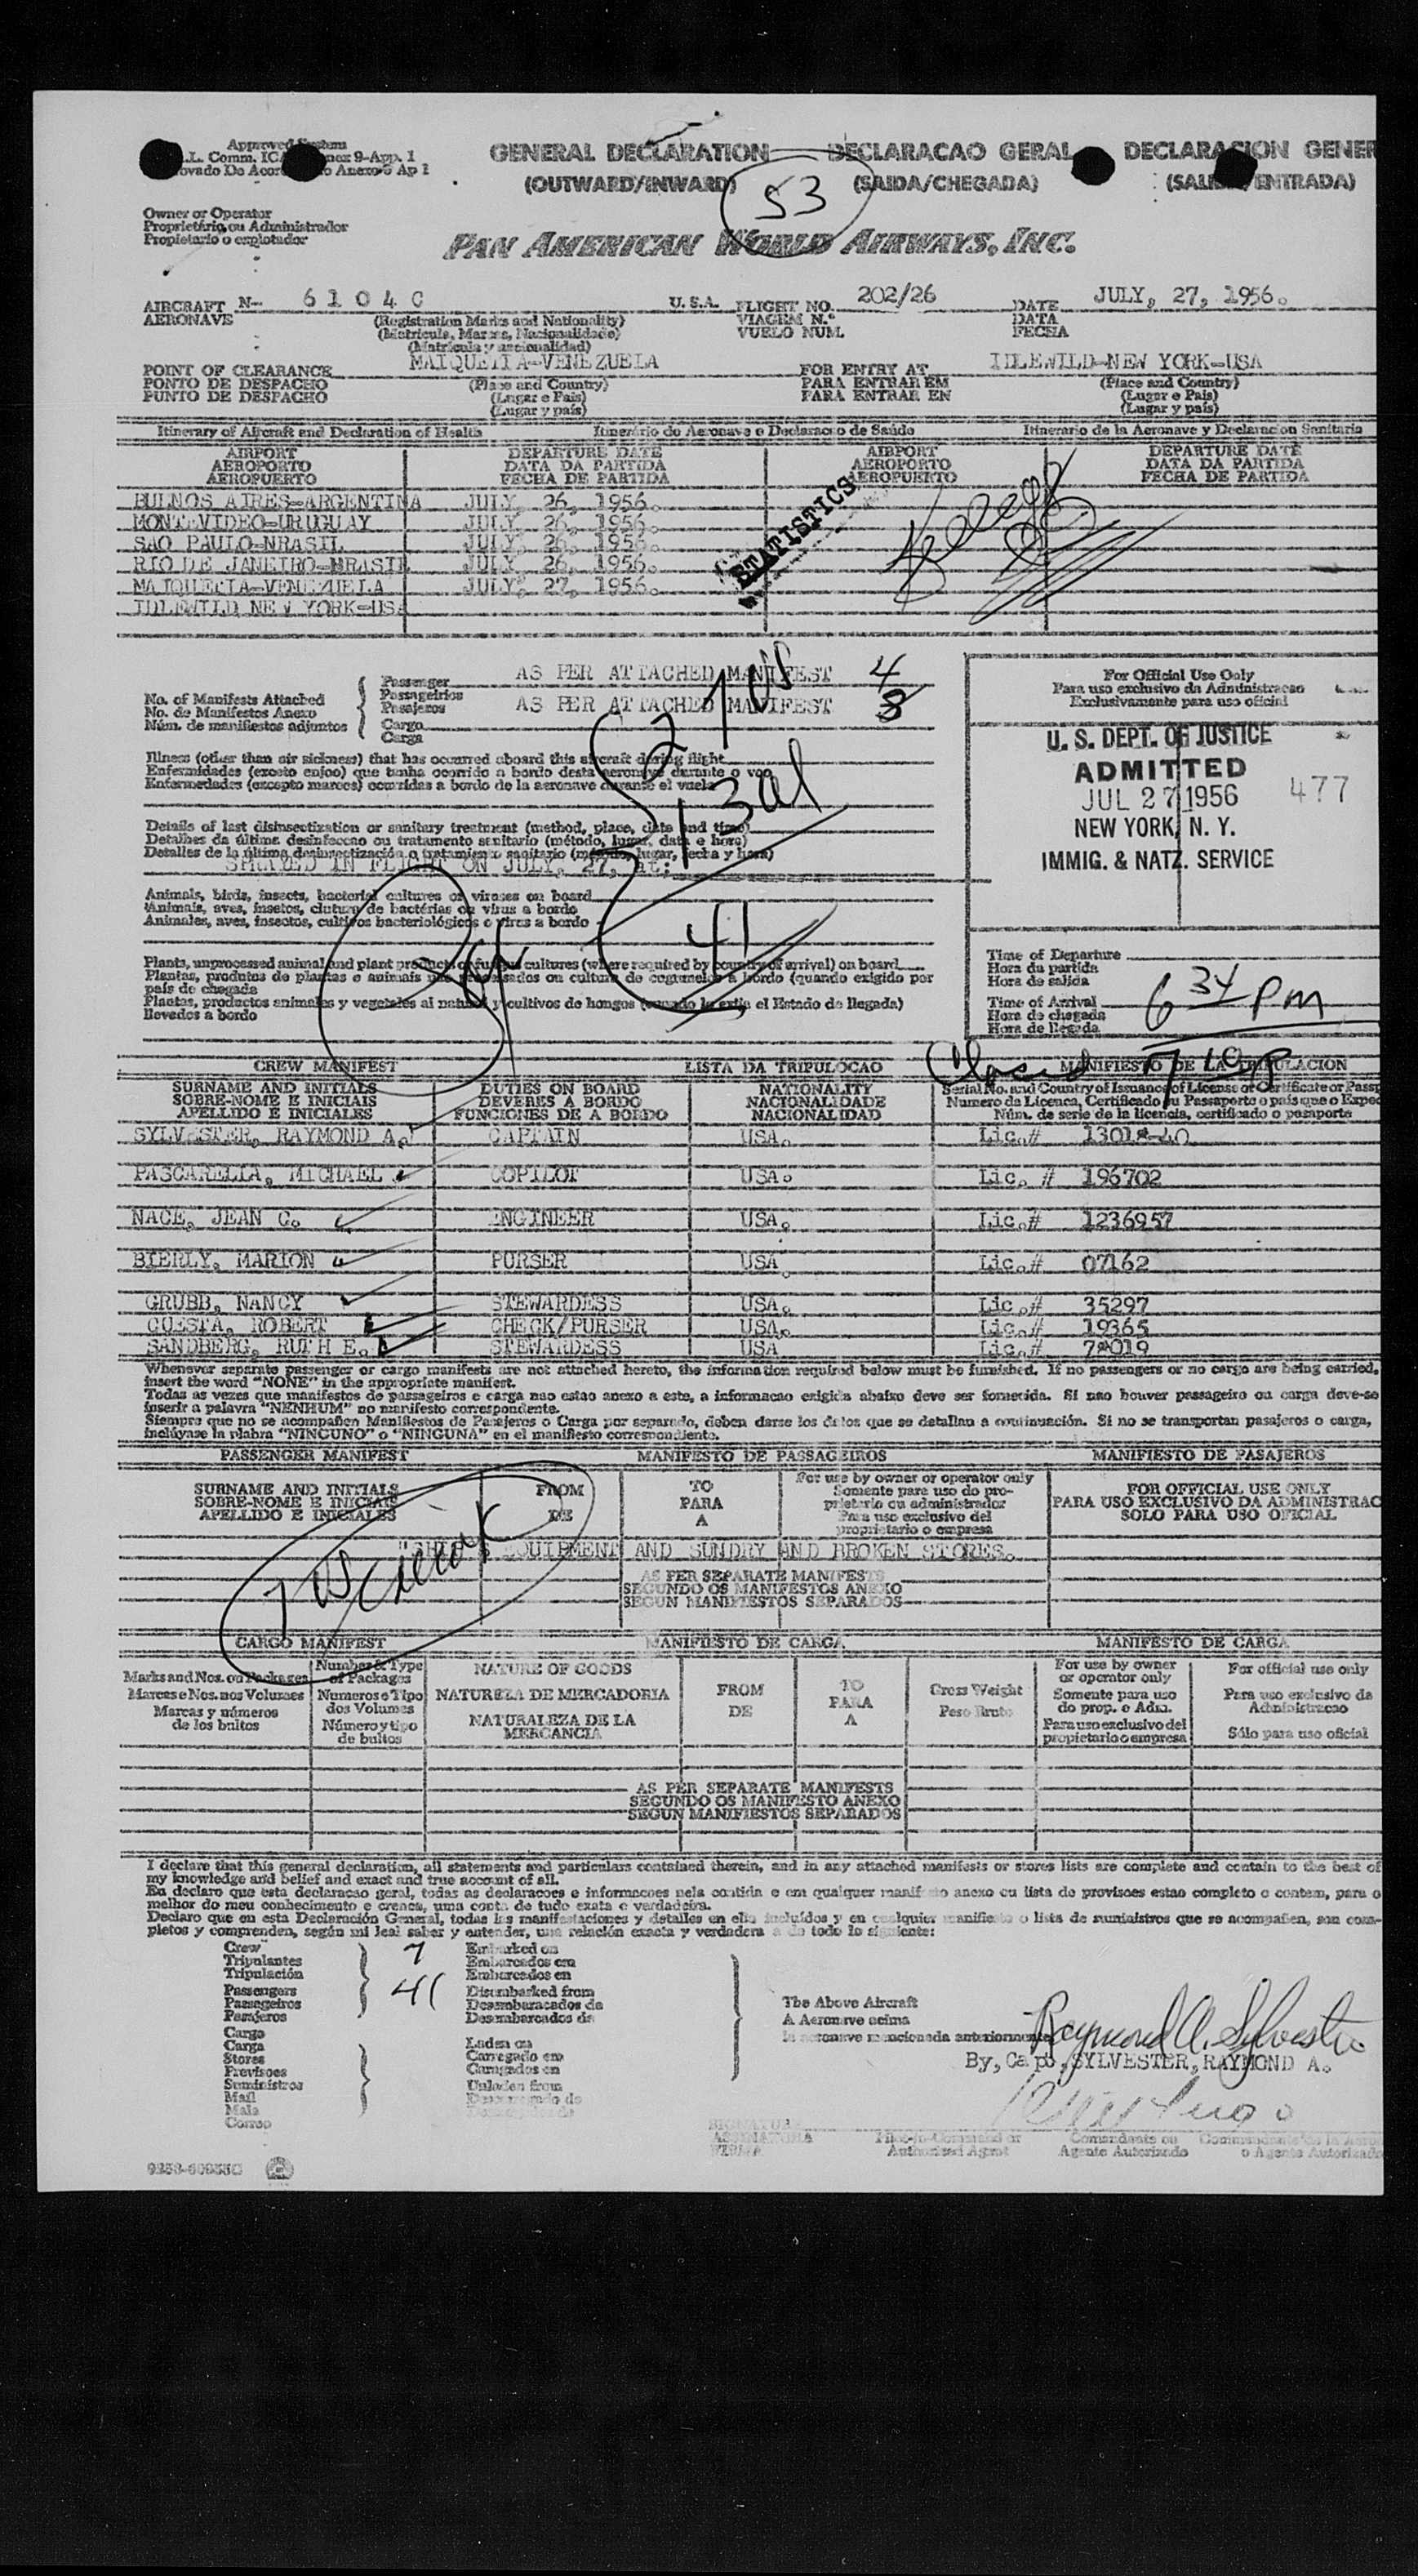 Approved System
.L. Comm. ICA nex 9-App. 1
ovado Do Acor o Anexo 9 Ap 1
GENERAL DECLARATION
(OUTWARD/INWARD)
DECLARACAO GERAL
(SAIDA/CHEGADA)
DECLARACION GENER
(SALIDA/ENTRADA)
53
Owner or Operator
Proprietário, ou Administrador
Propietario o explotador
PAN AMERICAN WORLD AIRWAYS, INC.
AIRCRAFT N- 6104C U.S.A. FLIGHT NO. 202/26 DATE JULY, 27, 1956.
AERONAVE (Registration Marks and Nationality) VIAGEM N.º DATA
(Matricula, Marcas, Nacionalidade) VUELO NUM. FECHA
(Matricula y nacionalidad)
POINT OF CLEARANCE MAIQUETIA-VENEZUELA FOR ENTRY AT IDLEWILD-NEW YORK-USA
PONTO DE DESPACHO (Place and Country) PARA ENTRAR EM (Place and Country)
PUNTO DE DESPACHO (Lugar e Pais) PARA ENTRAR EN (Lugar e Pais)
(Lugar y país) (Lugar y país)
Itinerary of Aircraft and Declaration of Health Itinerário do Aeronave e Declaracao de Saúde Itinerario de la Aeronave y Declaracion Sanitaria
AIRPORT DEPARTURE DATE AIRPORT DEPARTURE DATE
AEROPORTO DATA DA PARTIDA AEROPORTO DATA DA PARTIDA
AEROPUERTO FECHA DE PARTIDA AEROPUERTO FECHA DE PARTIDA
BUENOS AIRES-ARGENTINA JULY, 26, 1956.
MONTEVIDEO-URUGUAY JULY, 26, 1956.
SAO PAULO-NRASIL JULY, 26, 1956.
RIO DE JANEIRO-BRASIL JULY, 26, 1956.
MAIQUETIA-VENEZUELA JULY, 27, 1956.
IDLEWILD NEW YORK-USA
STATISTICS
No. of Manifests Attached
No. de Manifestos Anexo
Núm. de manifiestos adjuntos
Passenger AS PER ATTACHED MANIFEST 4
Passageirios
Pasajeros AS PER ATTACHED MANIFEST 3
Cargo
Carga
For Official Use Only
Para uso exclusivo da Administracao
Exclusivamente para uso oficial
U. S. DEPT. OF JUSTICE
ADMITTED
JUL 27 1956 477
NEW YORK, N. Y.
IMMIG. & NATZ. SERVICE
Illness (other than air sickness) that has occurred aboard this aircraft during flight
Enfermidades (exceto enjoo) que tenha ocorrido a bordo desta aeronave durante o voo
Enfermedades (excepto mareos) ocurridas a bordo de la aeronave durante el vuelo
Details of last disinsectization or sanitary treatment (method, place, date and time)
Detalhes da última desinfeccao ou tratamento sanitario (método, lugar, data e hora)
Detalles de la última desinsectización o tratamiento sanitario (método, lugar, fecha y hora)
SPRAYED IN FLIGHT ON JULY, 27, at:
Animals, birds, insects, bacterial cultures or viruses on board
Animais, aves, insetos, clutura de bactérias ou virus a bordo
Animales, aves, insectos, cultivos bacteriológicos o virus a bordo
41
Plants, unprocessed animal and plant products or fungus cultures (where required by country of arrival) on board
país de chegada
llevados a bordo
Time of Departure
Hora du partida
Hora de salida
Time of Arrival 6 34 pm
Hora de chegada
Hora de llegada
CREW MANIFEST LISTA DA TRIPULOCAO MANIFIESTO DE LA TRIPULACION
SURNAME AND INITIALS DUTIES ON BOARD NATIONALITY Serial No. and Country of Issuance of License or Certificate or Passp
SOBRE-NOME E INICIAIS DEVERES A BORDO NACIONALIDADE Numero da Licenca, Certificado ou Passaporte o país que o Exped
APELLIDO E INICIALES FUNCIONES DE A BORDO NACIONALIDAD Núm. de serie de la licencia, certificado o pasaporte
SYLVESTER, RAYMOND A. CAPTAIN USA. Lic.#
PASCARELLA, MICHAEL COPILOT USA. Lic. # 196702
NACE, JEAN C. ENGINEER USA. Lic.# 1236957
BIERLY, MARION PURSER USA. Lic.# 07162
GRUBB, NANCY STEWARDESS USA. Lic.# 35297
CUESTA, ROBERT CHECK/PURSER USA. Lic.# 19365
SANDBERG, RUTH E. STEWARDESS USA Lic.#
Whenever separate passenger or cargo manifests are not attached hereto, the information required below must be furnished. If no passengers or no cargo are being carried,
insert the word "NONE" in the appropriate manifest.
Todas as vezes que manifestos de passageiros e carga nao estao anexo a este, a informacao exigida abaixo deve ser fornecida. Si nao houver passageiro ou carga deve-se
inserir a palavra "NENHUM" no manifesto correspondente.
Siempre que no se acompañen Manifiestos de Pasajeros o Carga por separado, deben darse los datos que se detallan a continuación. Si no se transportan pasajeros o carga,
inclúyase la plabra "NINGUNO" o "NINGUNA" en el manifiesto correspondiente.
PASSENGER MANIFEST MANIFESTO DE PASSAGEIROS MANIFIESTO DE PASAJEROS
SURNAME AND INITIALS FROM TO For use by owner or operator only FOR OFFICIAL USE ONLY
SOBRE-NOME E INICIAIS PARA Somente para uso do pro- PARA USO EXCLUSIVO DA ADMINISTRAC
APELLIDO E INICIALES DE A prietario ou administrador SOLO PARA USO OFICIAL
Para uso exclusivo del
proprietario o empresa
EQUIPMENT AND SUNDRY AND BROKEN STORES.
AS PER SEPARATE MANIFESTS
SEGUNDO OS MANIFESTOS ANEXO
SEGUN MANIFIESTOS SEPARADOS
CARGO MANIFEST MANIFIESTO DE CARGA MANIFESTO DE CARGA
Marks and Nos. on Packages Number & Type of Packages NATURE OF GOODS FROM TO Gross Weight For use by owner or operator only For official use only
Marcas e Nos. nos Volumes Numeros e Tipo dos Volumes NATUREZA DE MERCADORIA DE PARA Peso Bruto Somente para uso do prop. o Adm. Para uso exclusivo da Administracao
Marcas y números de los bultos Número y tipo de bultos NATURALEZA DE LA MERCANCIA A Para uso exclusivo del propietario o empresa Sólo para uso oficial
AS PER SEPARATE MANIFESTS
SEGUNDO OS MANIFESTO ANEXO
SEGUN MANIFIESTOS SEPARADOS
I declare that this general declaration, all statements and particulars contained therein, and in any attached manifests or stores lists are complete and contain to the best of
my knowledge and belief and exact and true account of all.
Eu declaro que esta declaracao geral, todas as declaracoes e informacoes nela contida e em qualquer manifesto anexo ou lista de provisoes estao completo e contem, para o
melhor do meu conhecimento e crenca, uma conta de tudo exata e verdadeira.
Declaro que en esta Declaración General, todas las manifestaciones y detalles en ella incluídos y en cualquier manifiesto o lista de suministros que se acompañen, son com-
pletos y comprenden, según mi leal saber y entender, una relación exacta y verdadera de todo lo siguiente:
Crew 7 Embarked on
Tripulantes Embarcados em
Tripulación Embarcados en
Passengers 41 Disembarked from
Passageiros Desembaracados da
Pasajeros Desembarcados de
Cargo
Carga Laden on
Stores Carregado em
Previsoes Cargados en
Suministros Unladen from
Mail
Mala
Correo
The Above Aircraft
A Aeronave acima
la aeronave mencionada anteriormente
Raymond A. Sylvester
By, Cap., SYLVESTER, RAYMOND A.
SIGNATURE Pilot-in-Command or Comandante ou
ASSINATURA Authorized Agent Agente Autorizado o Agente Autorizado
FIRMA